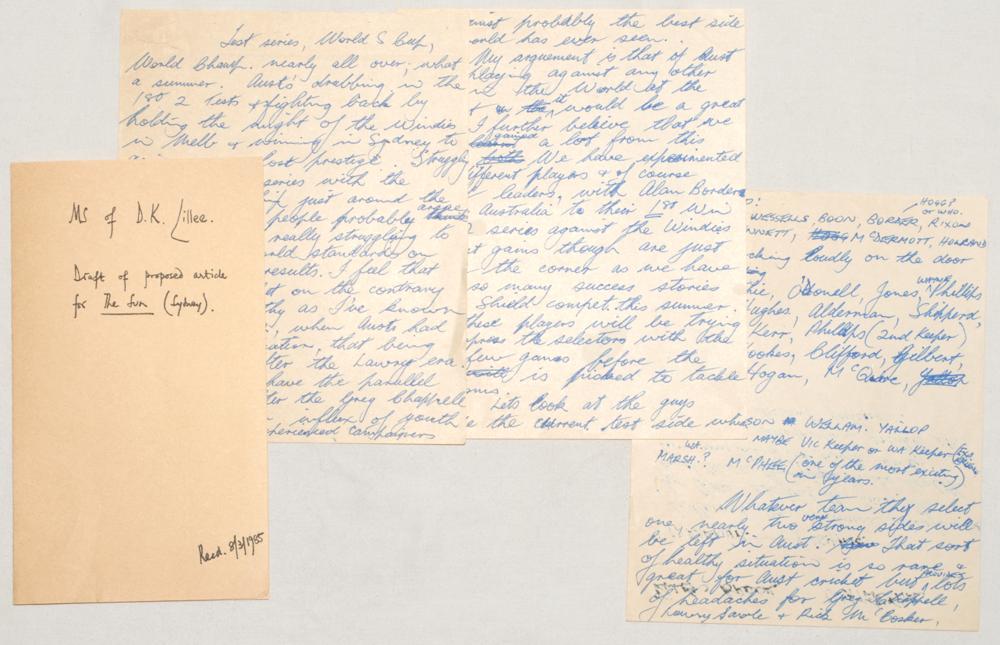 MS of D.K. Lillee.
Draft of proposed article
for The Sun (Sydney).
Recd. 8/3/1985
Test series, World S Cup,
World Champ. nearly all over; what
a summer. Aust's drubbing in the
1st 2 tests & fighting back by
holding the might of the Windies
in Melb & winning in Sydney to
lost prestige. Struggle
series with the
just around the
people probably
really struggling to
world standards on
results. I feel that
on the contrary
thy as I've known
, when Austs had
ation, that being
ter the Lawry era.
have the parallel
ter the Greg Chappell
influx of youth
perienced campaigners
against probably the best side
world has ever seen.
My arguement is that if Aust
playing against any other
in the World at the
it would be a great
I further beleive that we
gained a lot from this
We have experimented
different players & of course
leaders, with Alan Border
Australia to their 1st Win
series against the Windies
gains though are just
the corner as we have
so many success stories
Shield compet. this summer.
these players will be trying
press the selectors with the
few games before the
is picked to tackle
Lets look at the guys
the current test side who
HOGG?
OR WHO.
WESSELLS BOON, BORDER, RIXON
NNETT, McDERMOTT, HOLLAND
ching loudly on the door
O'Donell, Jones, Phillips
WAYNE
ughes, Alderman, Shipperd,
Kerr, Phillips (2nd Keeper)
Clifford, Gilbert,
SON WELLAM. YALLOP
MAYBE VIC Keeper or WA Keeper
WA.
MARSH? McPHEE (one of the most exciting
in years.
Whatever team they select
one, nearly two very strong sides will
be left in Aust. That sort
of healthy situation is so rare &
great for Aust cricket but provides lots
of headaches for Greg Chappell,
Lawry Sawle & Rick McCosker.